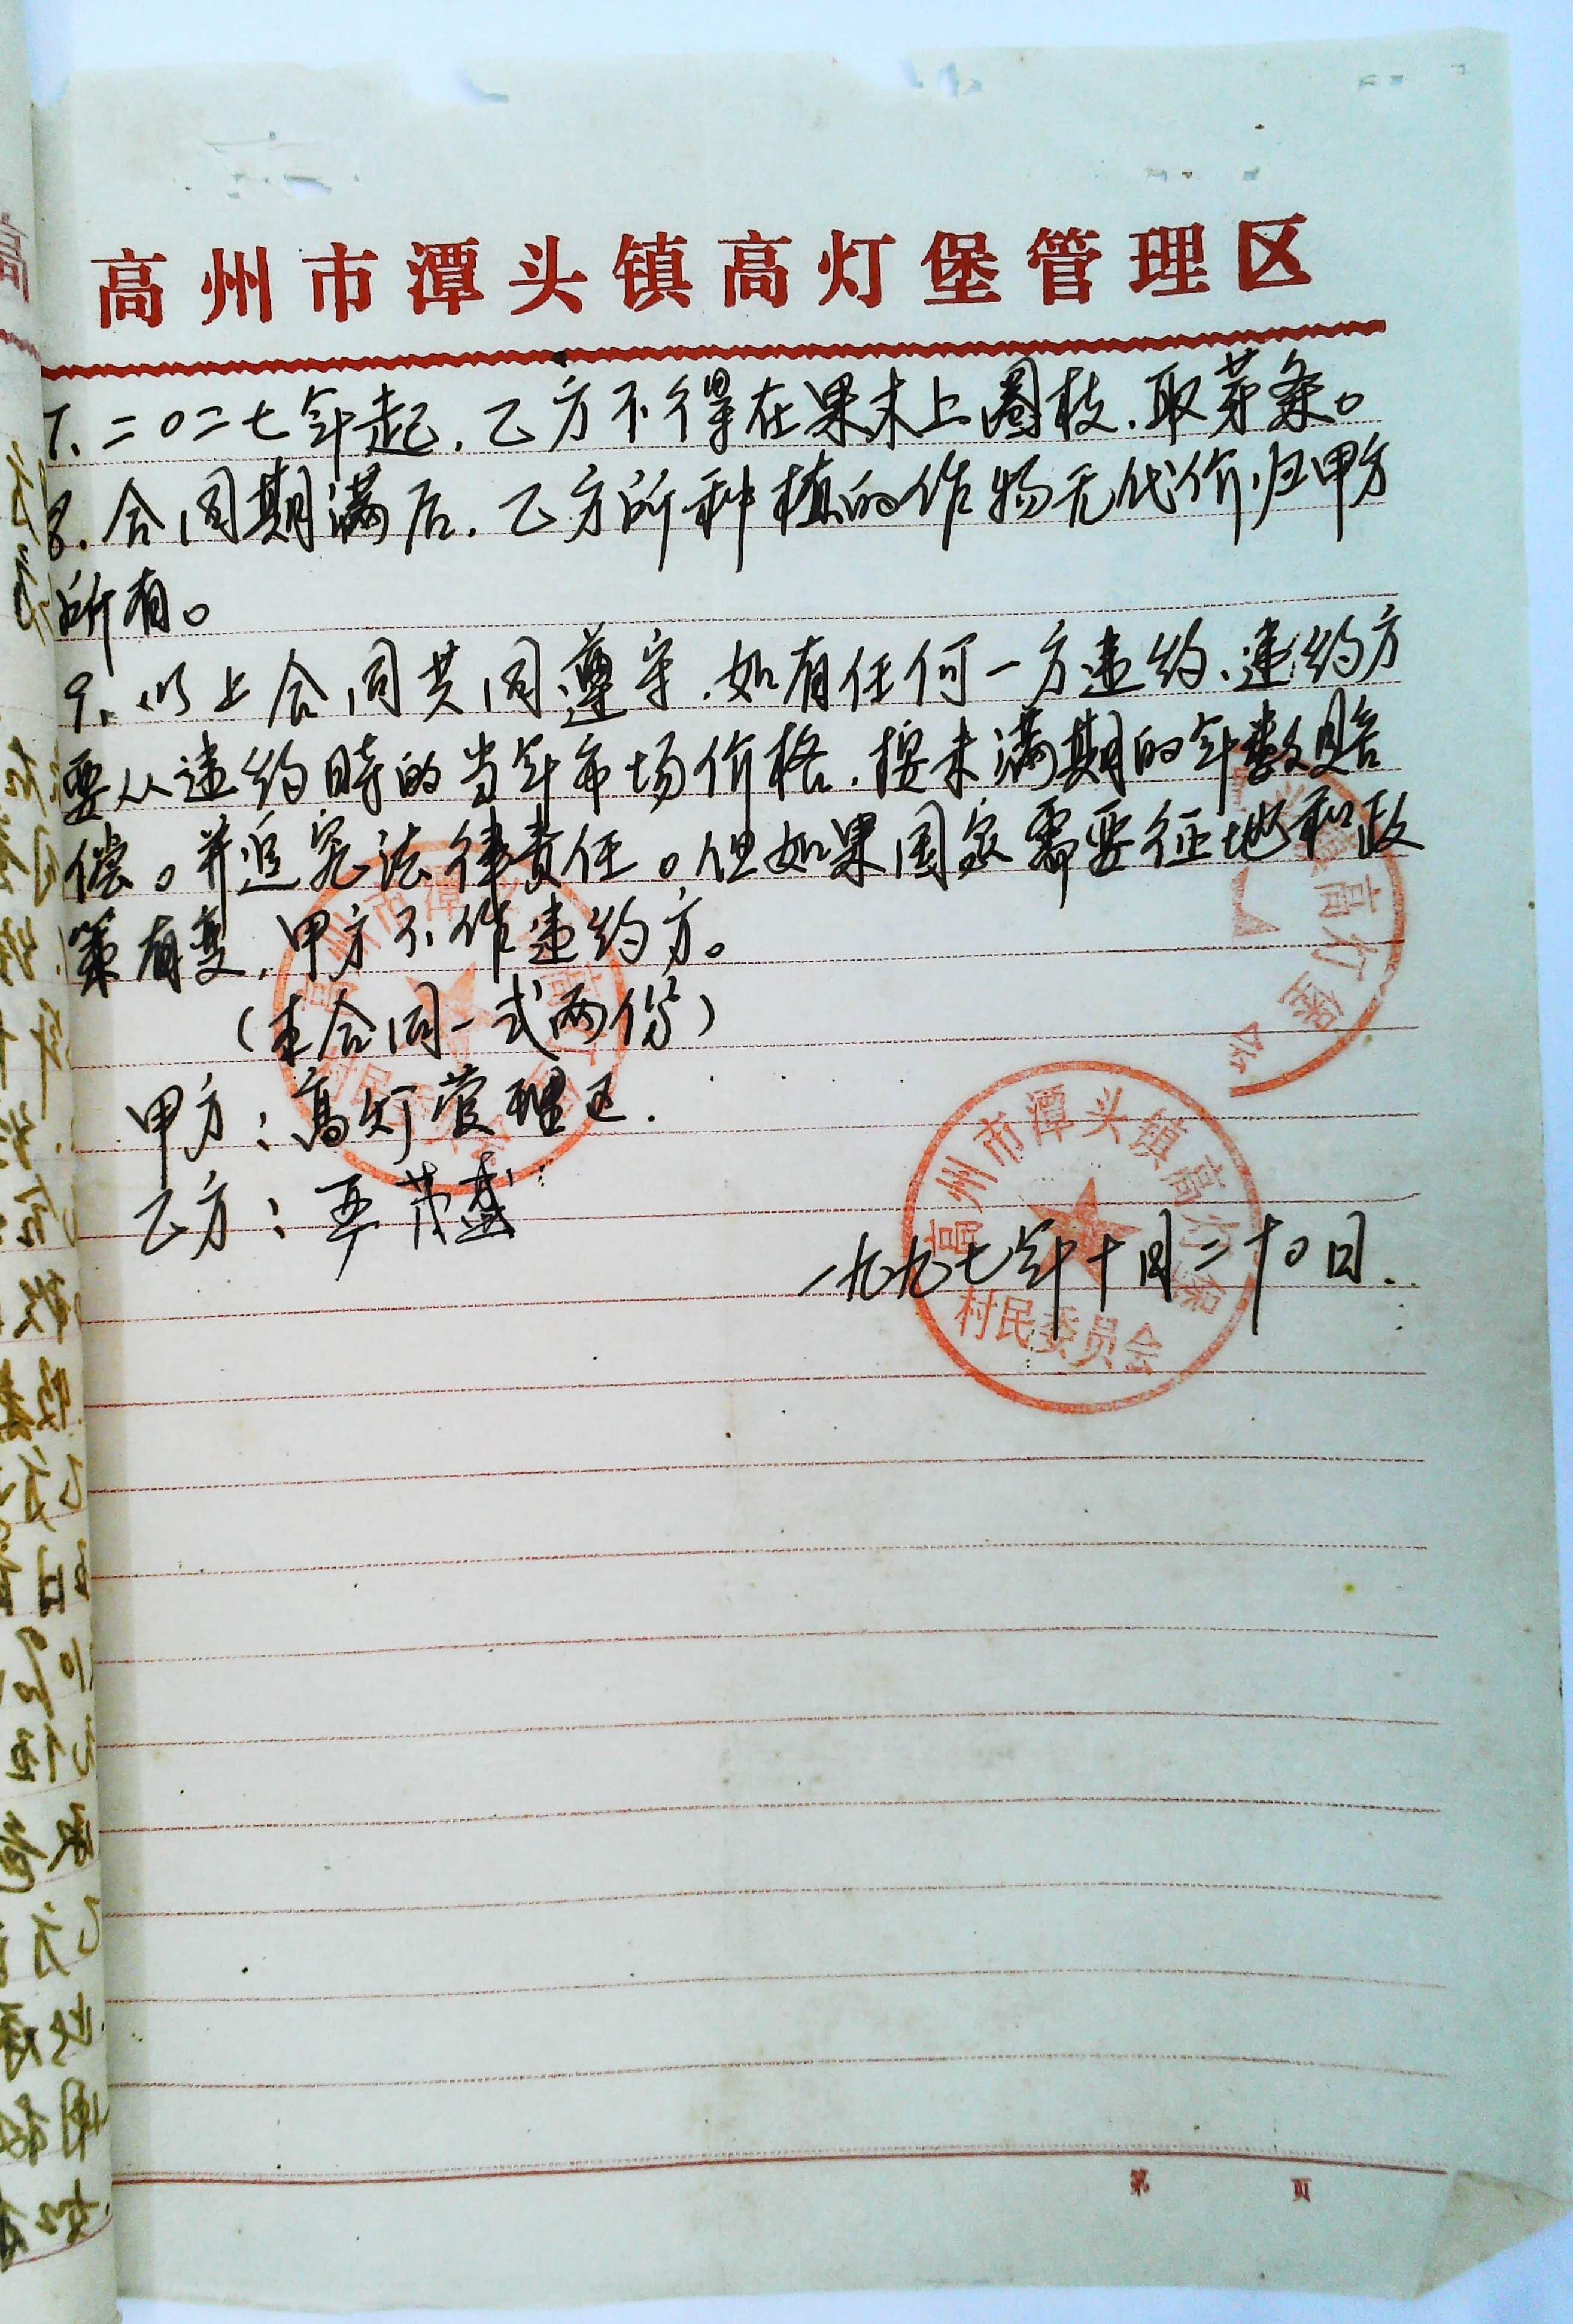 高州市潭头镇高灯堡管理区
7、二〇二七年起，乙方不得在果木上圈枝、取芽条。
8、合同期满后，乙方所种植的作物无代价归甲方
所有。
9、以上合同共同遵守，如有任何一方违约、违约方
要从违约时的当年市场价格，按未满期的年数赔
偿。并追究法律责任。但如果国家需要征地和政
策有变，甲方不作违约方。
（本合同一式两份）
甲方：高灯管理区.
乙方：
一九九七年十月二十日.
高州市潭头镇高灯堡
村民委员会
第 页